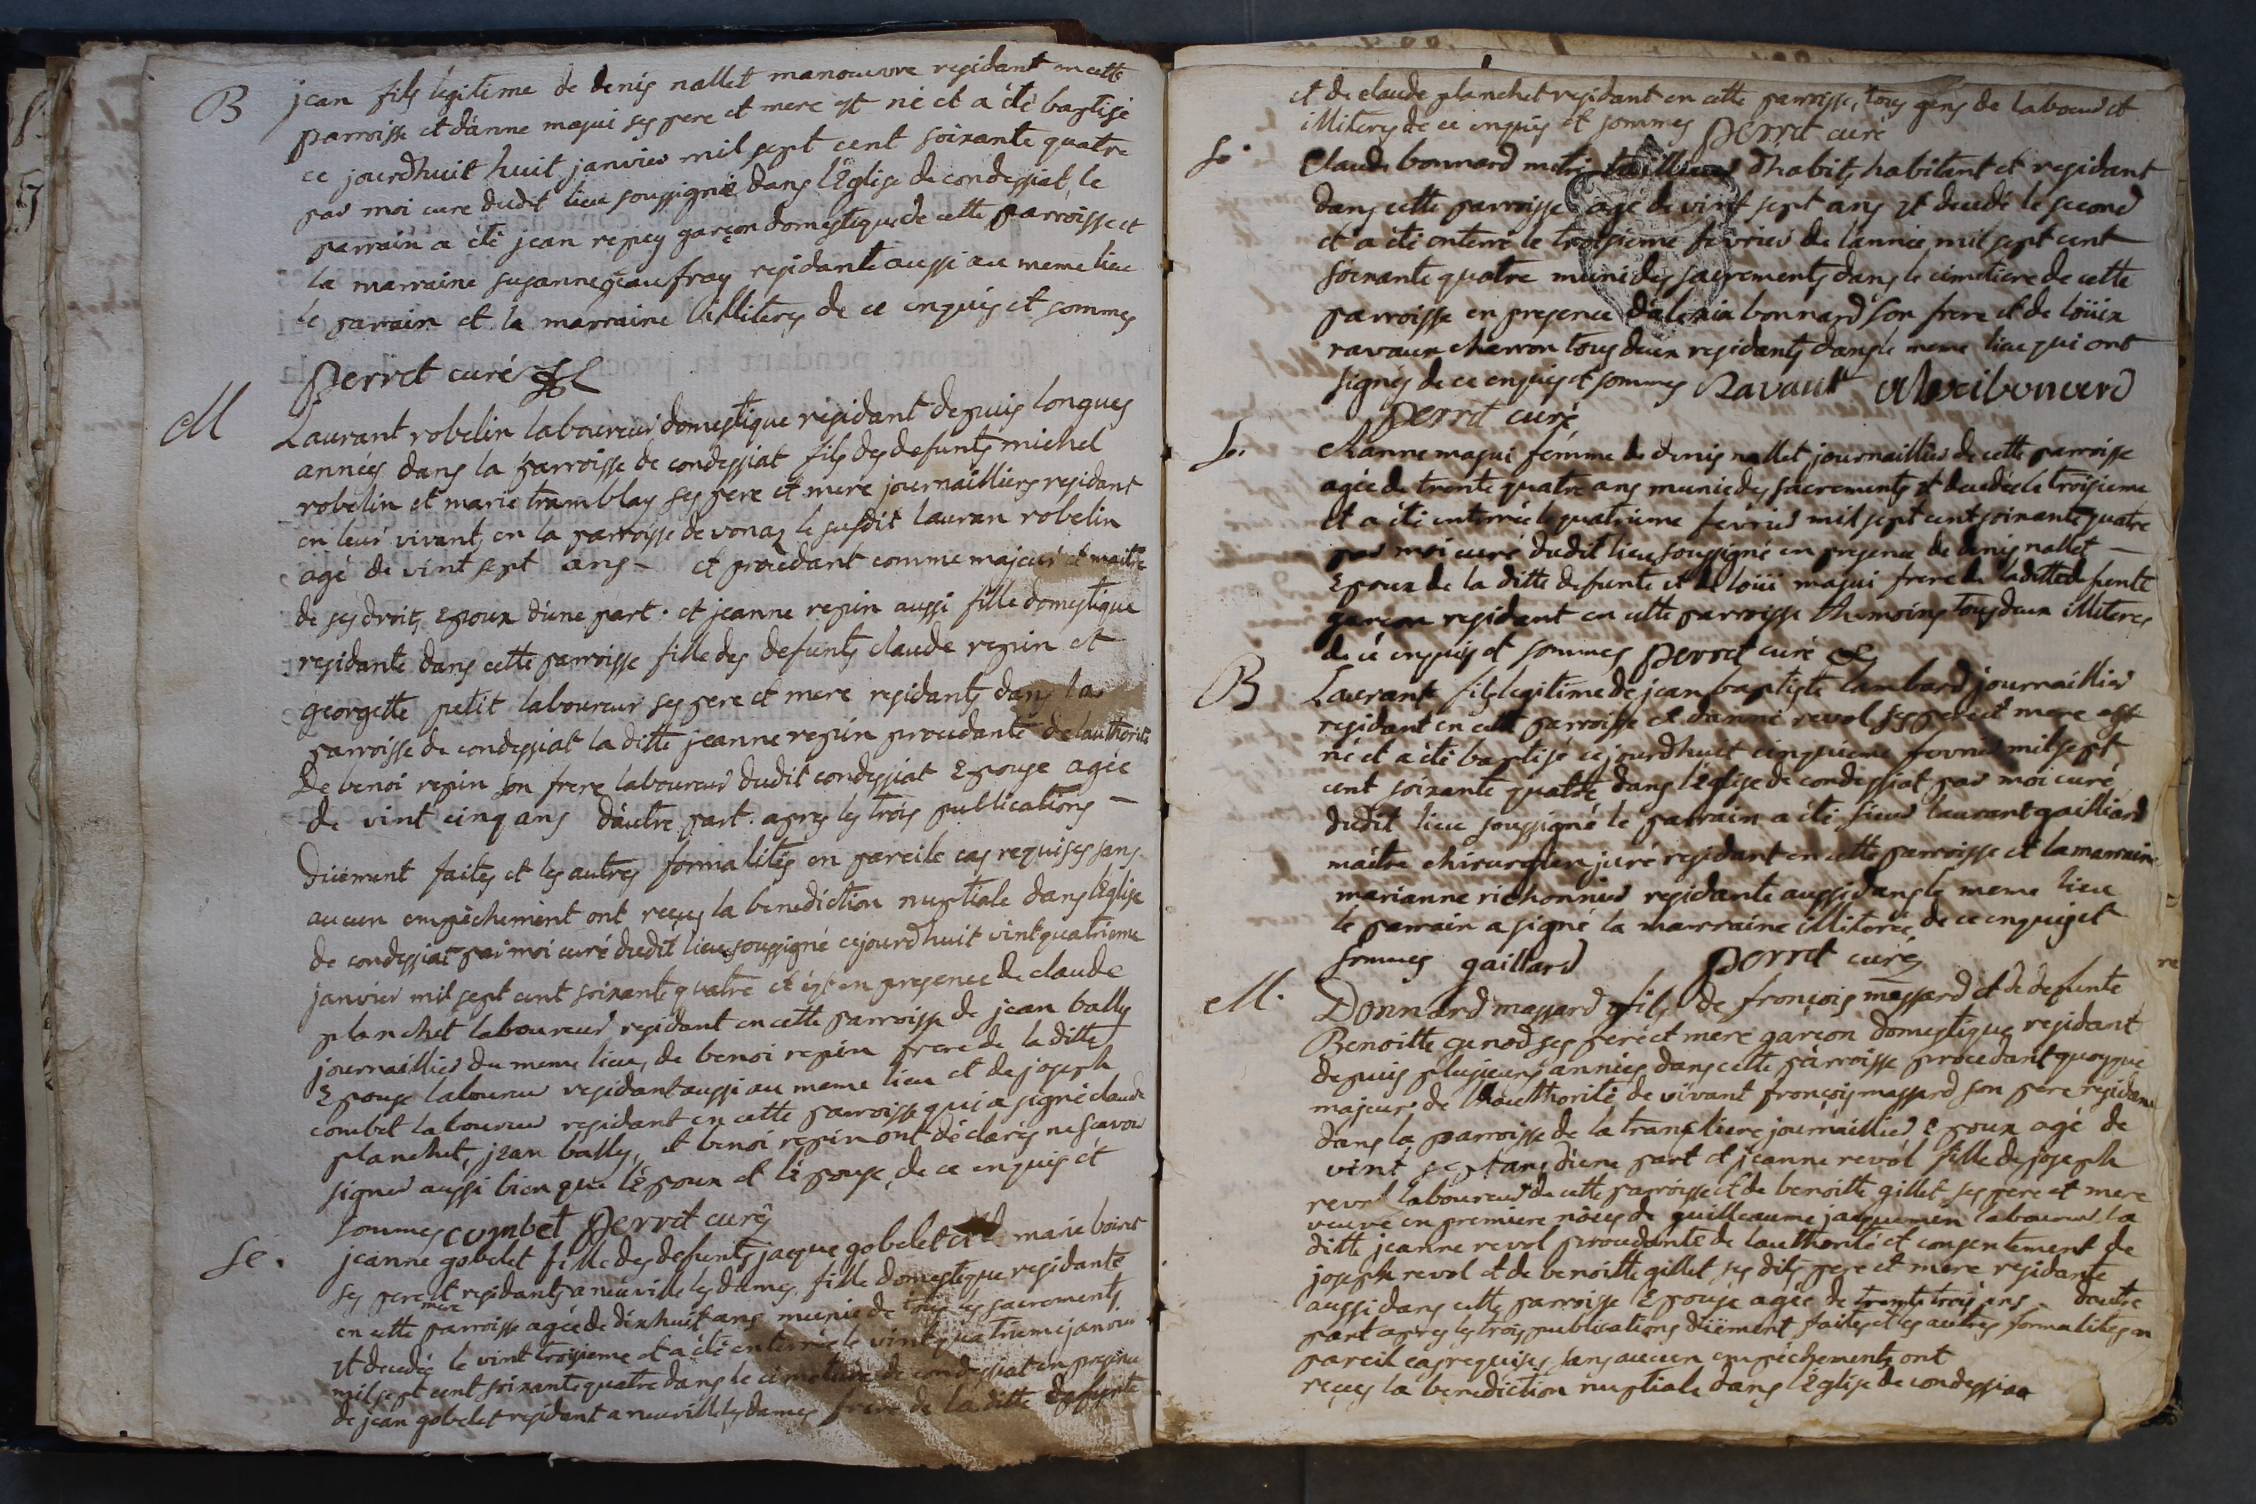 B
jean fils légitime de denis nallet manoeuvre residant en cette
parroisse et d'anne majui ses pere et mere est né et a été baptisé
ce jourdhuit huit janvier mil sept cent soixante quatre
par moi curé dudit lieu soussigné dans l'Eglise de condessiat, le
parrain a été jean repey garçon domestique de cette parroisse et
la marraine susanne geaufray residante aussi au meme lieu
le parrain et la marraine illiteres de ce enquis et sommes
perret curé
M
Laurant robelin laboureur domestique residant depuis longues
années dans la parroisse de condessiat fils des defunts michel
robelin et marie tramblay ses pere et mere journailliers residant
en leur vivant en la parroisse de vonas le susdit lauran robelin
agé de vint sept ans et procedant comme majeur et maitre
de ses droits Epoux d'une part. et jeanne repin aussi fille domestique
residante dans cette parroisse fille des defunts claude repin et
georgette petit laboureur ses pere et mere residants dans la
parroisse de condessiat la ditte jeanne repin procedante de l'authorité
de benoi repin son frere laboureur dudit condessiat Epouse agée
de vint cinq ans d'autre part. apres les trois publications
duëment faites et les autres formalités en pareile cas requises sans
aucun empêchement ont reçus la benediction nuptiale dans l'Eglise
de condessiat par moi curé dudit lieu soussigné cejourdhuit vint quatrieme
janvier mil sept cent soixante quatre et est en presence de claude
planchet laboureur residant en cette parroisse de jean bally
journaillier du meme lieu, de benoi repin frere de la ditte
Epouse laboureur residant aussi au meme lieu et de joseph
combet laboureur residant en cette parroisse qui a signé claude
planchet, jean bally, et benoi repin ont déclarés ne scavoir
signer aussi bien que l'Epoux et l'Epouse, de ce enquis et
sommes combet perret curé
Se.
jeanne gobelet fille des defunts jacque gobelet et de marie boirat
ses pere et mere residants a neuville les dames, fille domestique residante
en cette parroisse agée de dixhuit ans munie de tous les sacrements
est decedée le vint troisieme et a été enterrée le vint quatrieme janvier
mil sept cent soixante quatre dans le cimetiere de condessiat en presence
de jean gobelet residant a neuville les dames frere de la ditte defunte
et de claude planchet residant en cette parroisse, tous gens de labour et
illiteres de ce enquis et sommes perret curé
Se.
Claude bonnard metre tailleur d'habits habitant et residant
dans cette parroisse agé de vint sept ans est decedé le second
et a été enterré le troisieme fevrier de l'année mil sept cent
soixante quatre muni des sacrements dans le cimetiere de cette
parroisse en presence d'alexis bonnard son frere et de loüix
ravaux charron tous deux residants dans le meme lieu qui ont
signés de ce enquis et sommes Ravault
perret curé
Se.
anne majui femme de denis nallet journaillier de cette parroisse
agée de trente quatre ans munie des sacrements est decedée le troisieme
et a été enterrée le quatrieme fevrier mil sept cent soixante quatre
par moi curé dudit lieu soussigné en presence de denis nallet
Epoux de la ditte defunte et de loüi majui frere de laditte defunte
garçon residant en cette parroisse themoins tous deux illiteres
de ce enquis et sommes perret curé
B
Laurant fils legitime de jean baptiste lambard journaillier
residant en cette parroisse et d'anne revol ses pere et mere est
né et a été baptisé cejourdhuit cinquieme fevrier mil sept
cent soixante quatre dans l'Eglise de condessiat par moi curé
dudit lieu soussigné le parrain a été sieur laurant gailliard
maitre chirurgien juré residant en cette parroisse et la marraine
marianne richonnier residante aussi dans le meme lieu
le parrain a signé la marraine illiterée de ce enquis et
sommes gaillard perret curé
M.
Donnard massard fils de françois massard et de defunte
Benoitte genod ses pere et mere garcon domestique residant
depuis plusieurs années dans cette parroisse procedant quoyque
majeur de l'authorité de vivant françois massard son pere residant
dans la parroisse de la transliere journaillier Epoux agé de
vint sept ans d'une part et jeanne revol fille de joseph
revol laboureur de cette parroisse et de benoitte gillet ses pere et mere
veuve en premiere nôces de guilleaume jaquemin laboureur la
ditte jeanne revol procedante de l'authorité et consentement de
joseph revol et de benoitte gillet ses dits pere et mere residante
aussi dans cette parroisse Epouse agée de trente trois ans dautre
part apres les trois publications duëment faites et les autres formalités en
pareil cas requises sans aucun empêchements ont
reçus la benediction nuptiale dans l'Eglise de condessiat